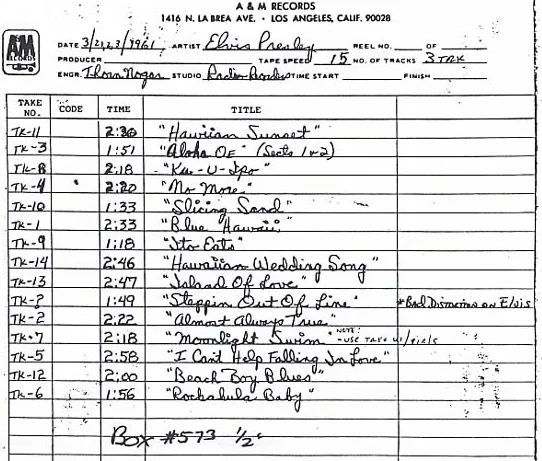 A & M RECORDS
1416 N. LA BREA AVE. • LOS ANGELES, CALIF. 90028
A&M RECORDS
DATE 3/21,23/1961 ARTIST Elvis Presley REEL NO. OF
PRODUCER TAPE SPEED 15 NO. OF TRACKS 3 TRK
ENGR. Thorn Nogar STUDIO Radio Recorders TIME START FINISH
TAKE NO. CODE TIME TITLE
TK-11 2:30 "Hawiian Sunset"
TK-3 1:51 "Aloha OE" (Sects 1+2)
TK-8 2:18 "Ku-U-Ipo"
TK-4 2:20 "No More"
TK-10 1:33 "Slicing Sand"
TK-1 2:33 "Blue Hawaii"
TK-9 1:18 "Ito Eats"
TK-14 2:46 "Hawaiian Wedding Song"
TK-13 2:47 "Island Of Love"
TK-? 1:49 "Steppin Out Of Line" *Bad Distortion on Elvis
TK-2 2:22 "Almost Always True"
TK-7 2:18 "Moonlight Swim" NOTE: -USE TAKE W/girls
TK-5 2:58 "I Can't Help Falling In Love"
TK-12 2:00 "Beach Boy Blues"
TK-6 1:56 "Rockahula Baby"
Box #573 1/2"